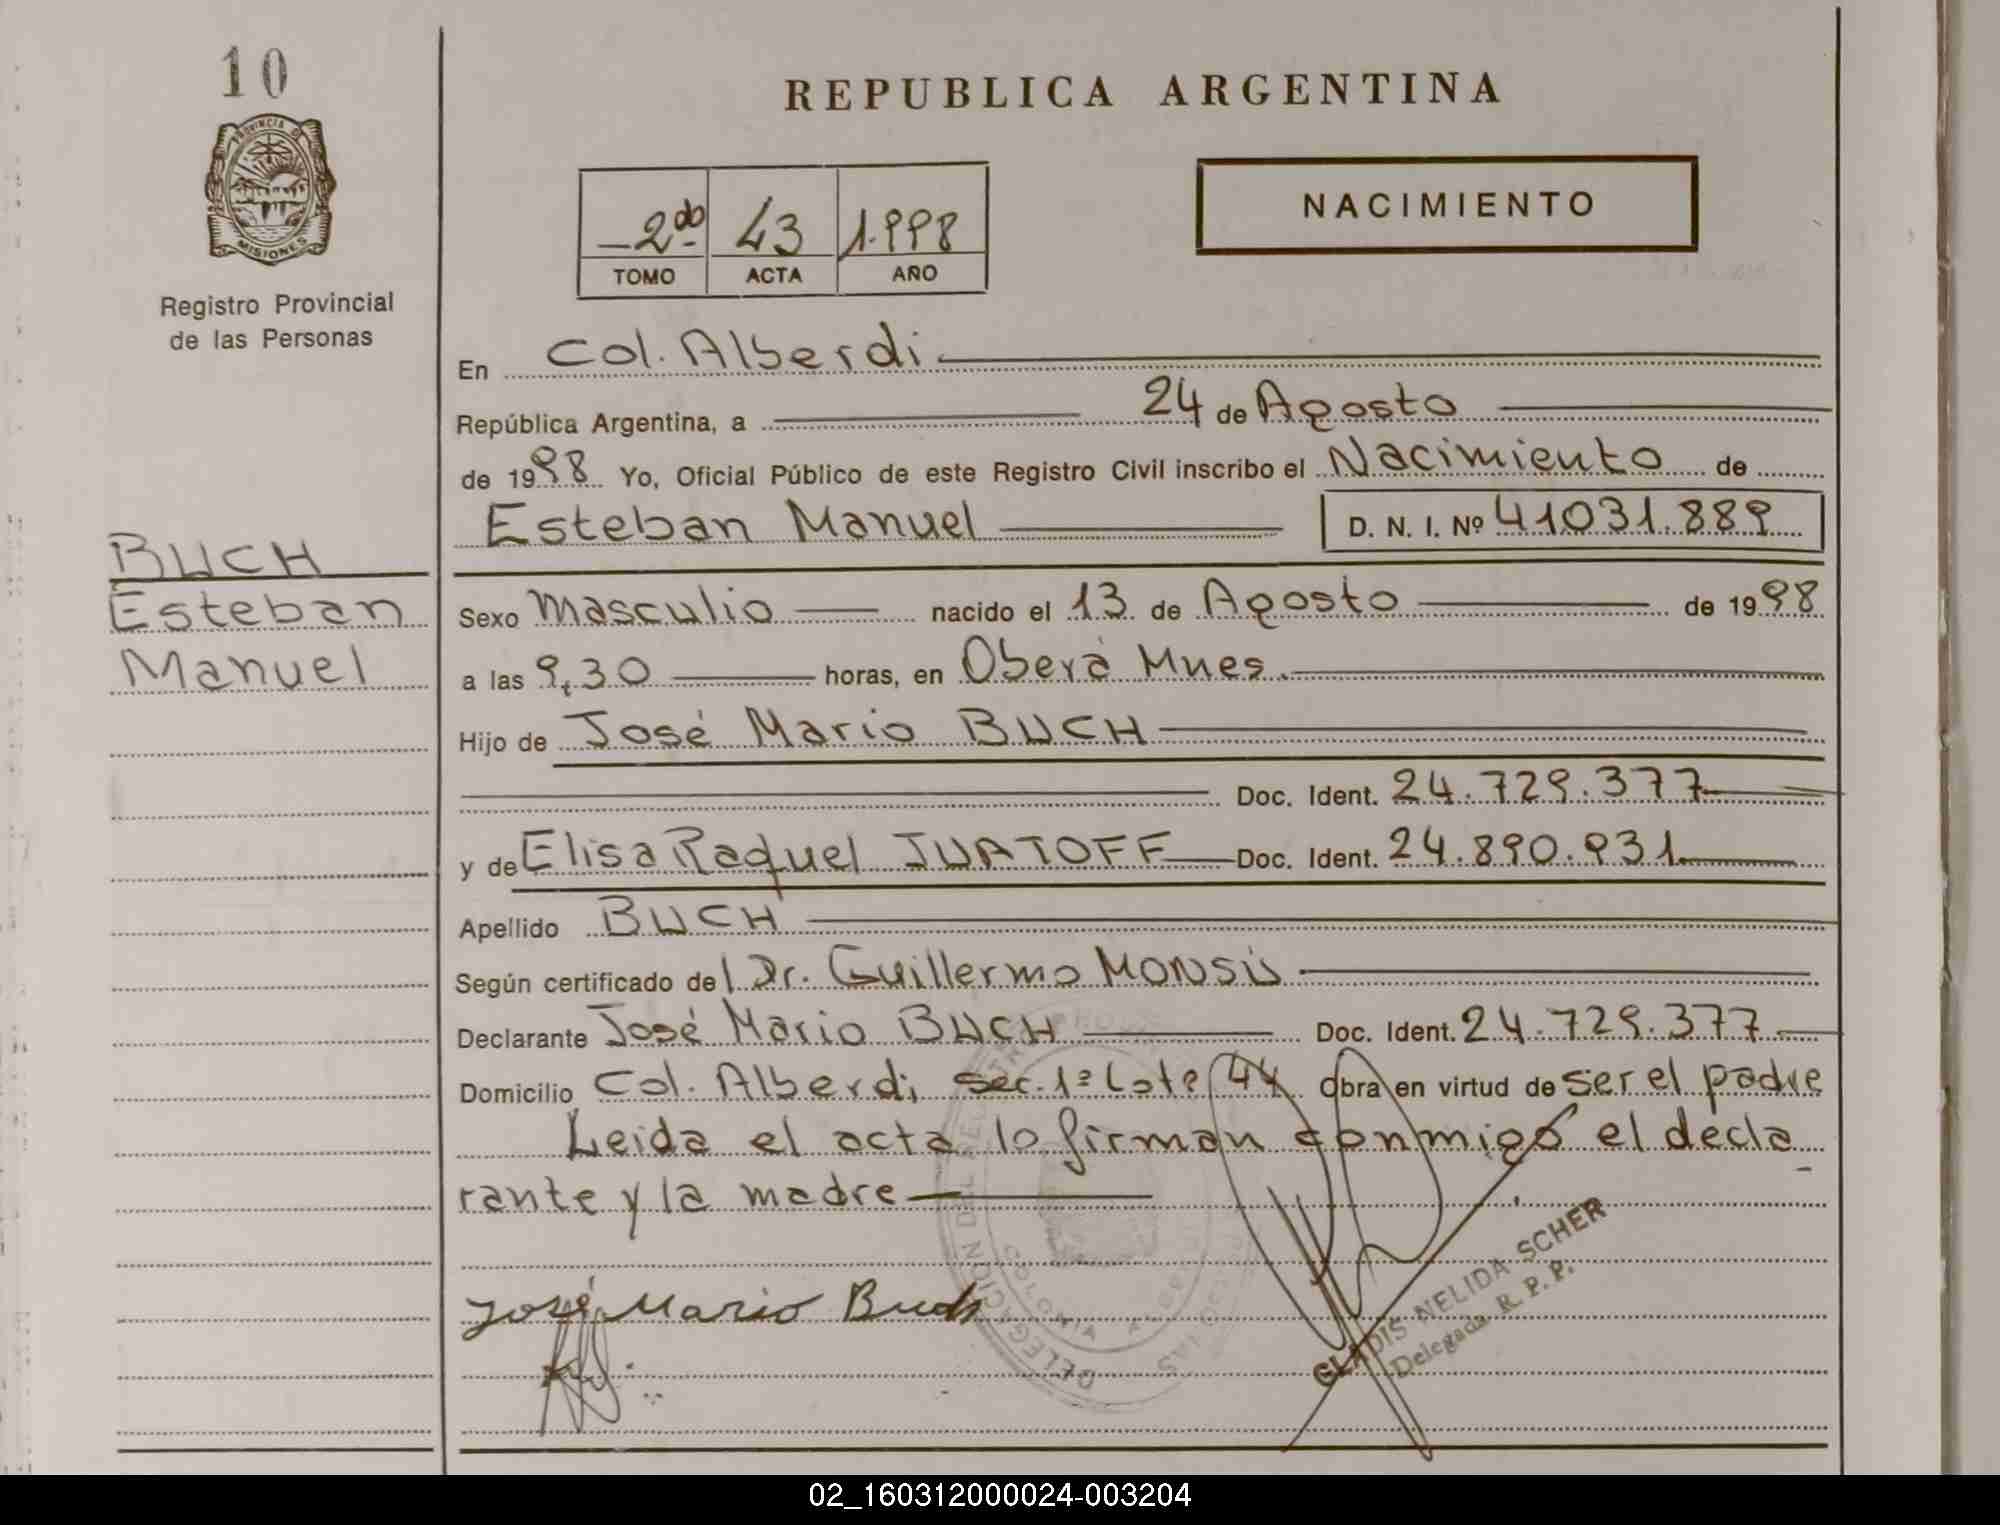 10
PROVINCIA D
MISIONES
Registro Provincial
de las Personas
REPUBLICA ARGENTINA
2do 43 1.998
TOMO ACTA AÑO
NACIMIENTO
En Col. Alberdi
República Argentina, a 24 de Agosto
de 1998 Yo, Oficial Público de este Registro Civil inscribo el Nacimiento de
Esteban Manuel D. N. I. Nº 41031.889
BUCH
Esteban
Manuel
Sexo Masculio nacido el 13 de Agosto de 1998
a las 9,30 horas, en Oberá Mnes.
Hijo de José Mario BUCH
Doc. Ident. 24.729.377
y de Elisa Raquel JUATOFF Doc. Ident. 24.890.931
Apellido BUCH
Según certificado del Dr. Guillermo
Declarante José Mario BUCH Doc. Ident. 24.729.377
Domicilio Col. Alberdi sec. 1ª Lote 44 Obra en virtud de ser el padre
Leida el acta lo firman conmigo el decla
rante y la madre
José Mario Buch
DELEGACION DEL
COLONIA
GLADIS NELIDA SCHER
Delegada R. P. P.
02_160312000024-003204